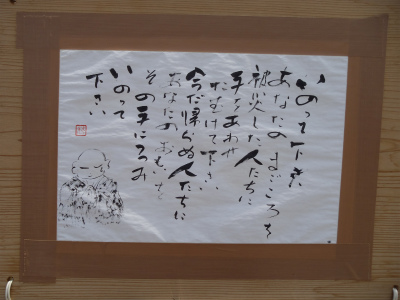 いのって下さい
あなたの まごころを
被災した人たちに
手をあわせ
たむけて下さい
今だ帰らぬ人たちに
あなたの おもいを
その手につつみ
いのって
下さい